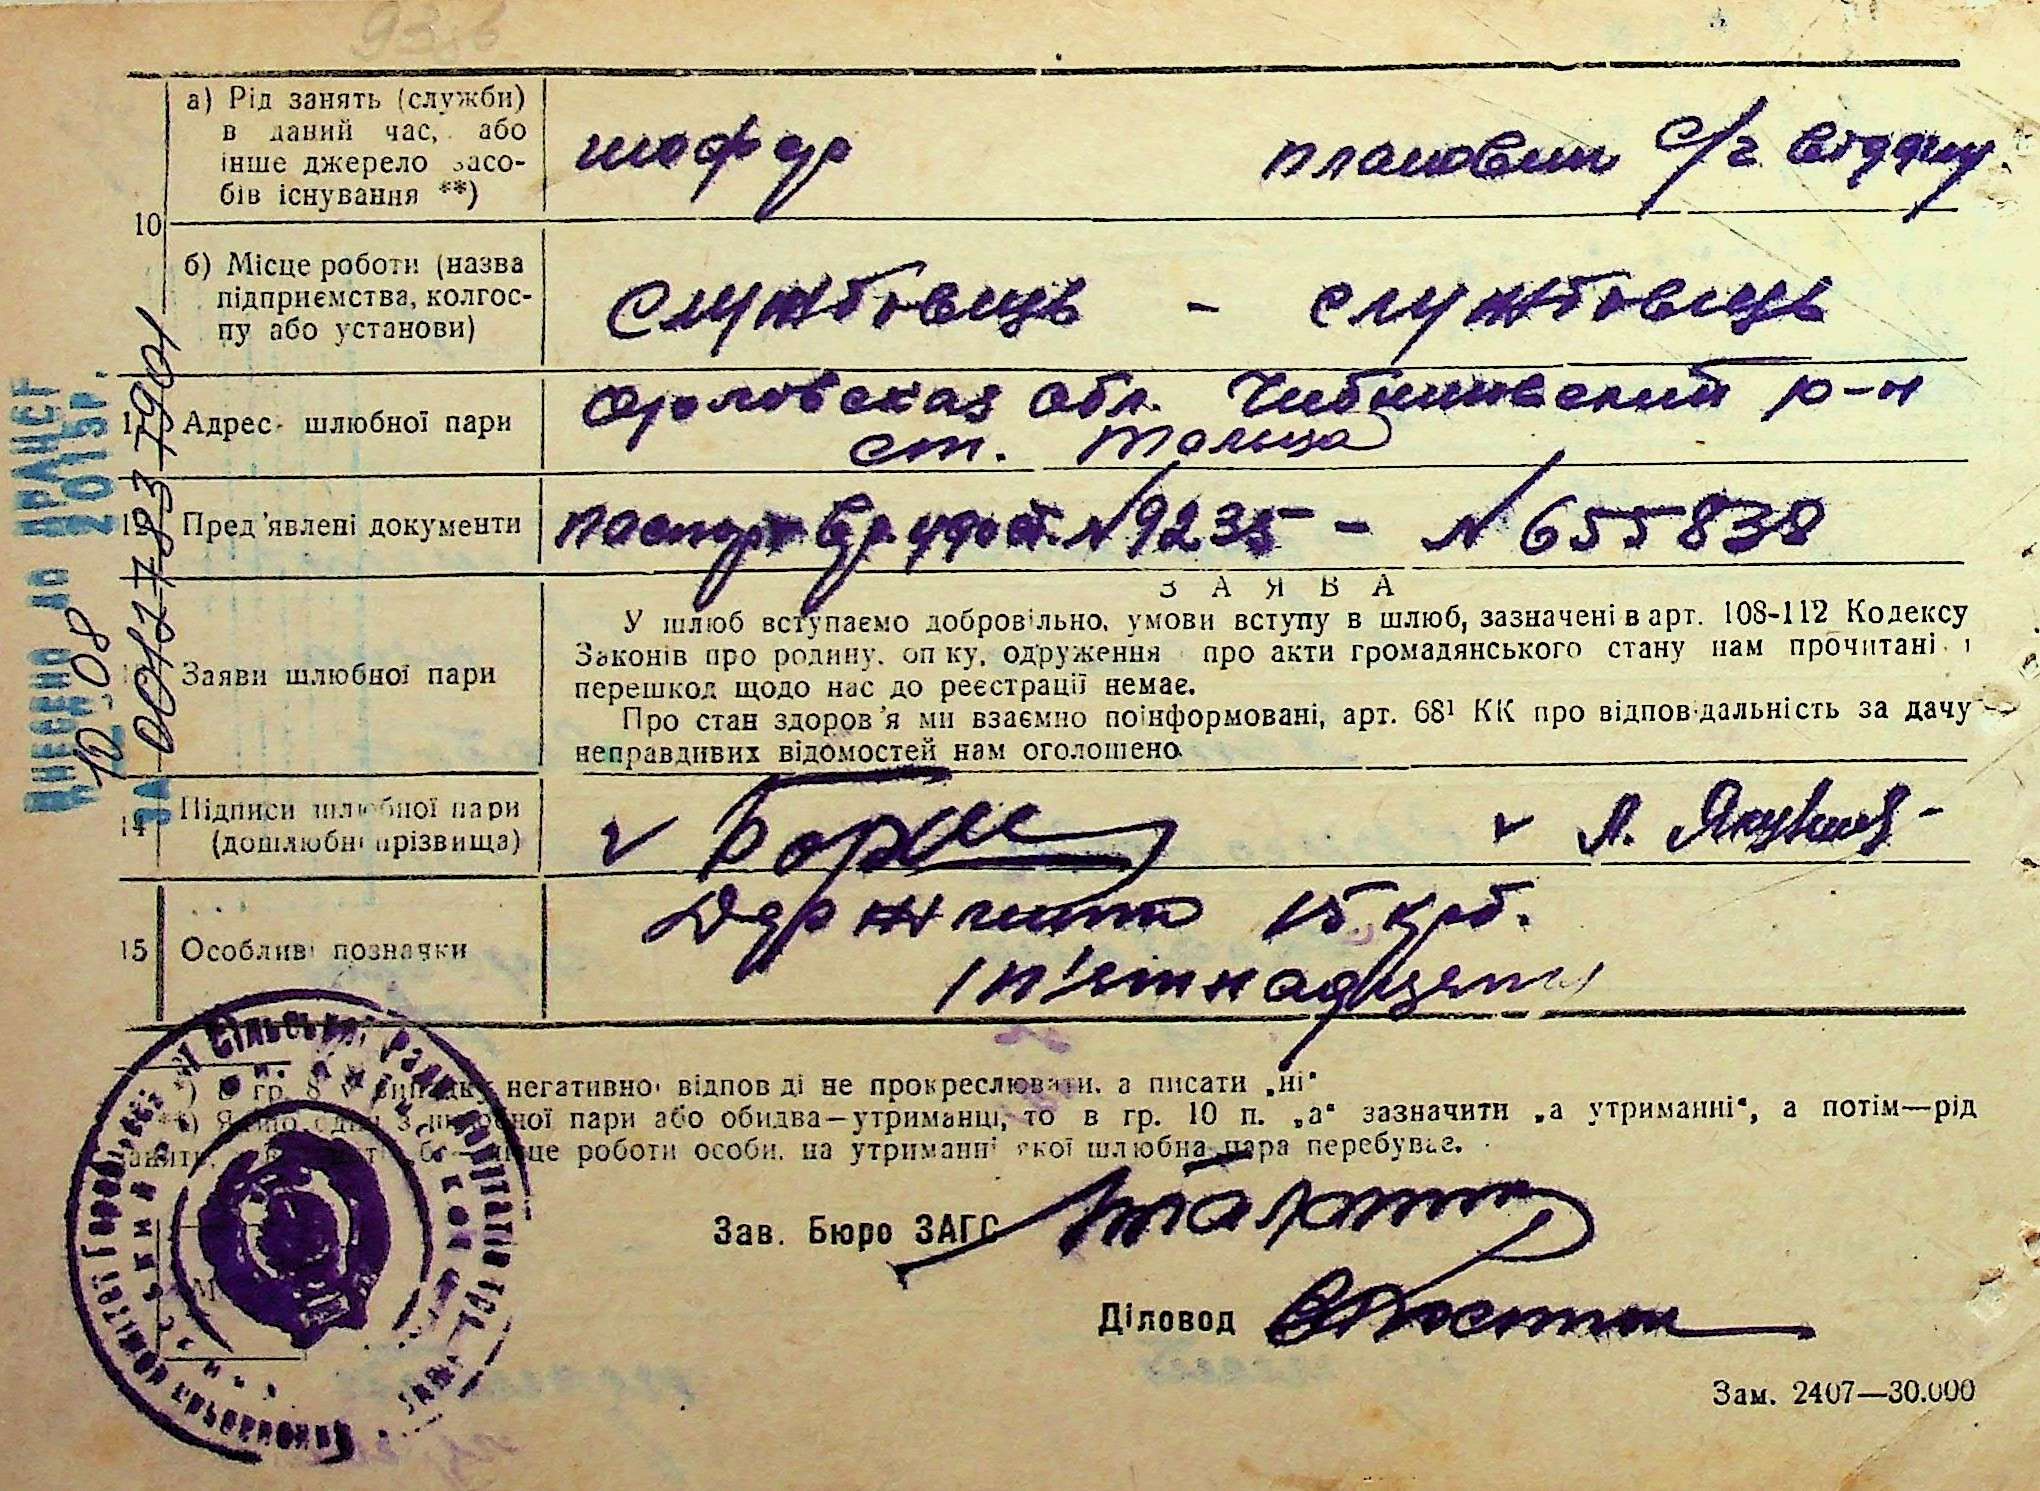 а) Рід занять (служби)
в даний час, або
інше джерело засо-
бів існування **)
шофер плановик с/г. відділу
10
б) Місце роботи (назва
підприємства, колгос-
пу або установи)
службовець - службовець
Адрес шлюбної пари
Орловская обл. р-н
ст.
12 Пред'явлені документи
паспорт №9235 - №655838
ЗАЯВА
У шлюб вступаємо добровільно, умови вступу в шлюб, зазначені в арт. 108-112 Кодексу
Законів про родину, опіку, одруження про акти громадянського стану нам прочитані і
перешкод щодо нас до реєстрації немає.
Про стан здоров'я ми взаємно поінформовані, арт. 68¹ КК про відповідальність за дачу
неправдивих відомостей нам оголошено.
Заяви шлюбної пари
14 Підписи шлюбної пари
(дошлюбні прізвища)
15 Особливі позначки
Держмито 15 крб.
/п'ятнадцять/
*) В гр. 8 у випадку негативної відповіді не прокреслювати, а писати „ні“
**) Якщо один з шлюбної пари або обидва—утриманці, то в гр. 10 п. „а“ зазначити „а утриманні“, а потім—рід
місце роботи особи, на утриманні якої шлюбна пара перебуває.
Зав. Бюро ЗАГС
Діловод
Зам. 2407—30.000
ВНЕСЕНО ДО ДРАЦСГ
12 08 2015р.
ЗА № 00127837901